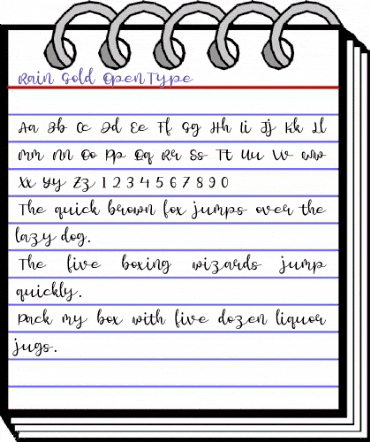 Rain Gold OpenType
Aa Bb Cc Dd Ee Ff Gg Hh Ii Jj Kk Ll
Mm Nn Oo Pp Qq Rr Ss Tt Uu Vv Ww
Xx Yy Zz 1 2 3 4 5 6 7 8 9 0
The quick brown fox jumps over the
lazy dog.
The five boxing wizards jump
quickly.
Pack my box with five dozen liquor
jugs.